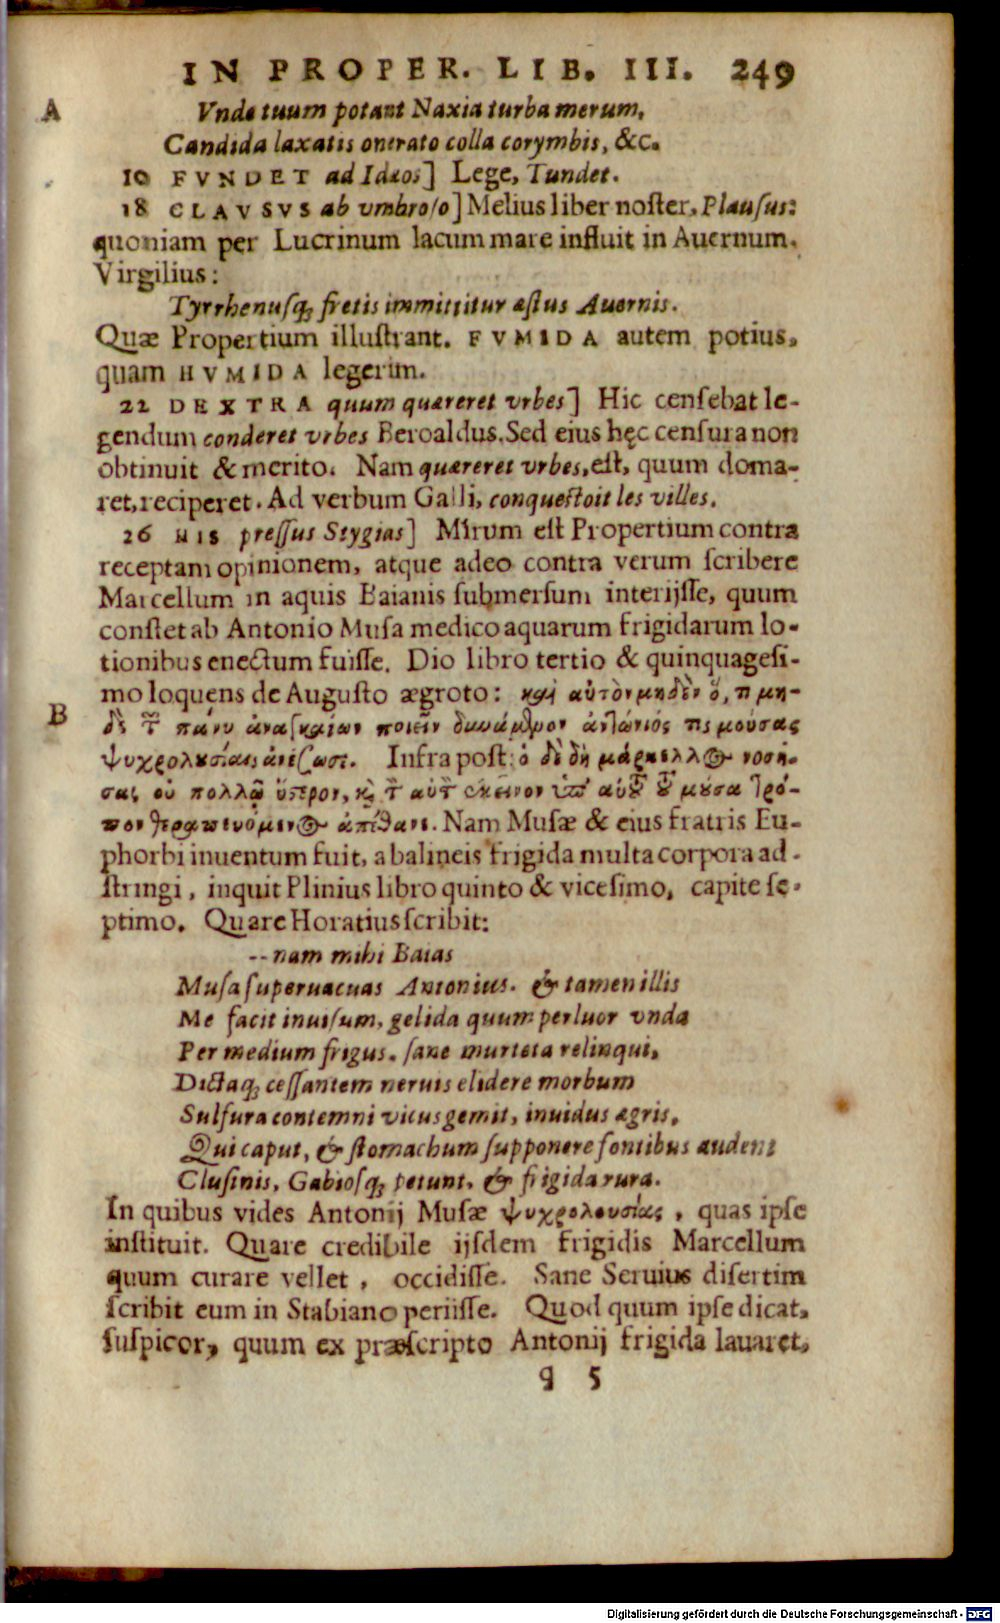 IN PROPER. LIB. III. 249
A
Vnde tuum potant Naxia turba merum,
Candida laxatis onerato colla corymbis, &c.
10 FVNDET ad Idæos] Lege, Tundet.
18 CLAVSVS ab vmbroso] Melius liber noster, Plausus:
quoniam per Lucrinum lacum mare influit in Auernum.
Virgilius:
Tyrrhenusq; fretis immittitur æstus Auernis.
Quæ Propertium illustrant. FVMIDA autem potius,
quam HVMIDA legerim.
22 DEXTRA quum quæreret vrbes] Hic censebat le-
gendum conderet vrbes Beroaldus. Sed eius hęc censura non
obtinuit & merito. Nam quæreret vrbes, est, quum doma-
ret, reciperet. Ad verbum Galli, conquestoit les villes.
26 HIS pressus Stygias] Mirum est Propertium contra
receptam opinionem, atque adeo contra verum scribere
Marcellum in aquis Baianis submersum interijsse, quum
constet ab Antonio Musa medico aquarum frigidarum lo-
tionibus enectum fuisse. Dio libro tertio & quinquagesi-
mo loquens de Augusto ægroto: καὶ αὐτὸν μηδὲν ὅ, τι μη-
B
δὲ τῶν πάνυ ἀναγκαίων ποιεῖν δυνάμενον ἀντώνιός τις μούσας
ψυχρολουσίαις ἀνέσωσε. Infra post: ὁ δὲ δὴ μάρκελλος νοσή-
σας οὐ πολλῷ ὕστερον, καὶ τὸν αὐτὸν ἐκεῖνον ὑπὸ αὐτοῦ τοῦ μούσα τρό-
πον θεραπευόμενος ἀπέθανε. Nam Musæ & eius fratris Eu-
phorbi inuentum fuit, a balineis frigida multa corpora ad-
stringi, inquit Plinius libro quinto & vicesimo, capite se-
ptimo. Quare Horatius scribit:
-- nam mihi Baias
Musa superuacuas Antonius. & tamen illis
Me facit inuisum, gelida quum perluor vnda
Per medium frigus. sane murteta relinqui,
Dictaq; cessantem neruis elidere morbum
Sulfura contemni vicus gemit, inuidus ægris,
Qui caput, & stomachum supponere fontibus audent
Clusinis, Gabiosq; petunt, & frigida rura.
In quibus vides Antonij Musæ ψυχρολουσίας, quas ipse
instituit. Quare credibile ijsdem frigidis Marcellum
quum curare vellet, occidisse. Sane Seruius disertim
scribit eum in Stabiano periisse. Quod quum ipse dicat,
suspicor, quum ex præscripto Antonij frigida lauaret,
q 5
Digitalisierung gefördert durch die Deutsche Forschungsgemeinschaft - DFG